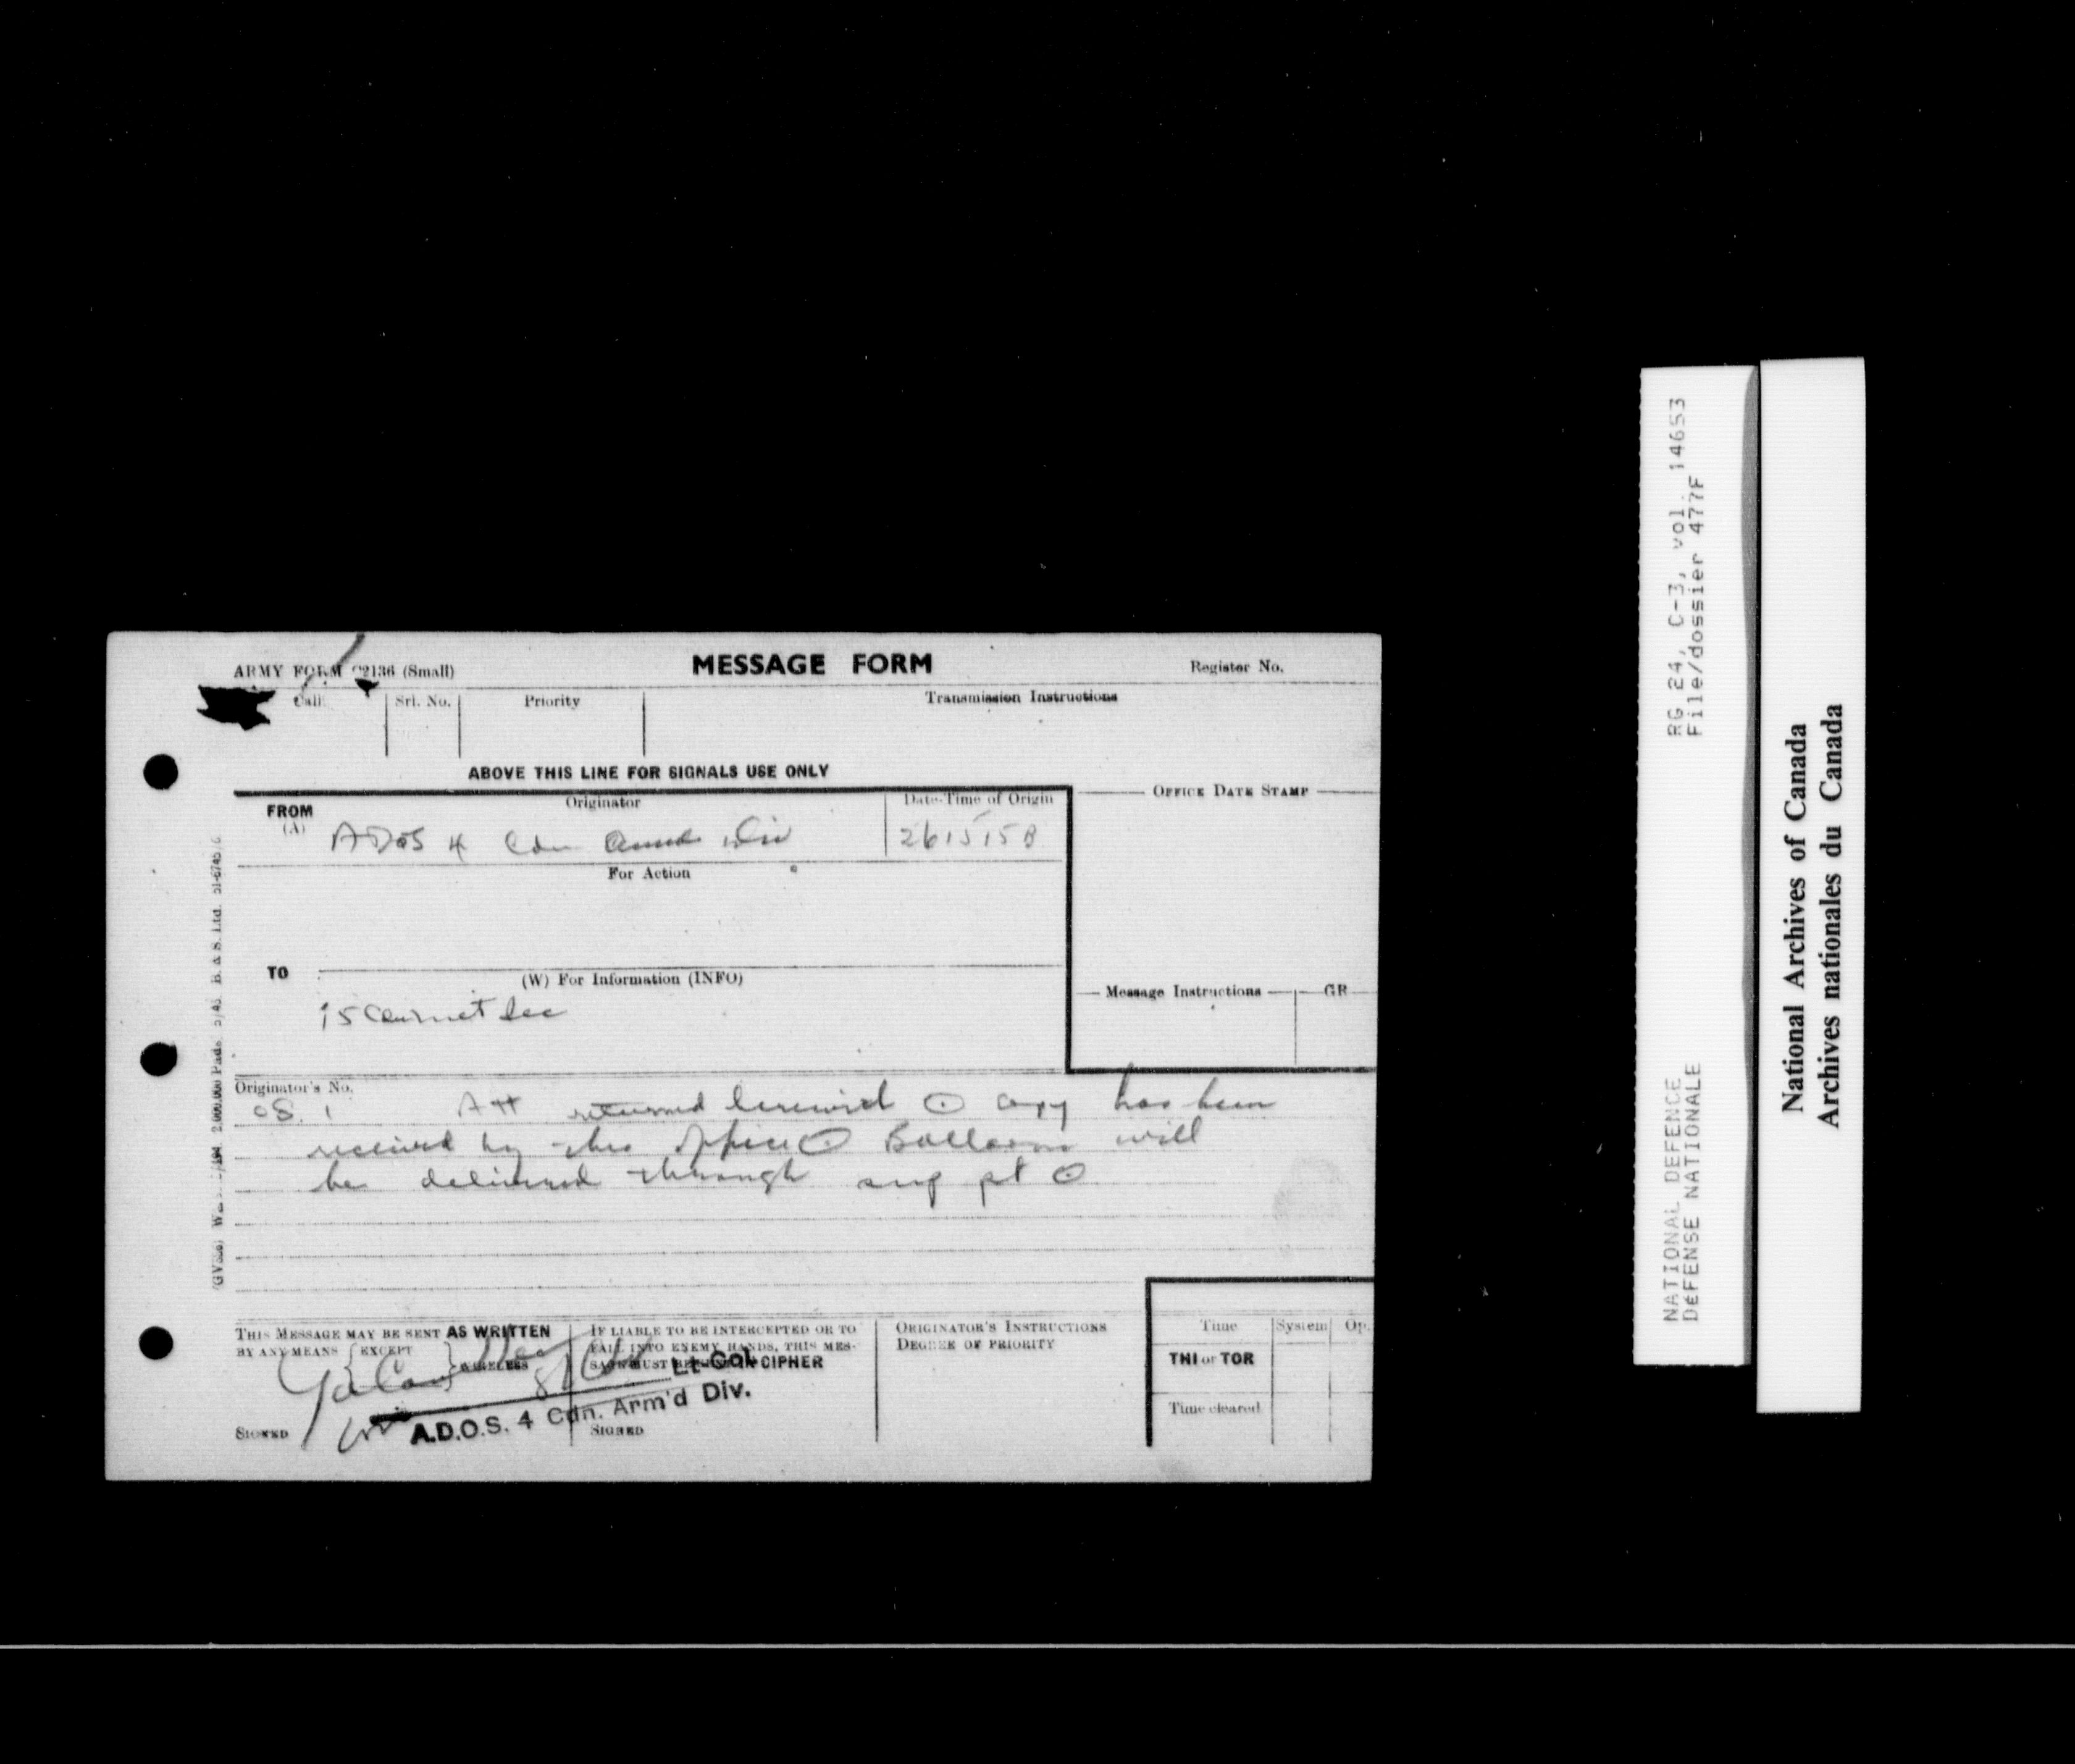 ARMY FORM C2136 (Small)
MESSAGE FORM
Register No.
Call
Srl. No.
Priority
Transmission Instructions
ABOVE THIS LINE FOR SIGNALS USE ONLY
FROM
(A)
Originator
Date-Time of Origin
OFFICE DATE STAMP
ADOS 4 Cdn Armd Div
261515B
For Action
TO
(W) For Information (INFO)
Message Instructions
GR
15 Cdn met sec
Originator's No.
OS. 1 Att returned herewith ⊙ copy has been
received by this office ⊙ Balloons will
be delivered through sup pt ⊙
THIS MESSAGE MAY BE SENT AS WRITTEN
BY ANY MEANS { EXCEPT } WIRELESS
IF LIABLE TO BE INTERCEPTED OR TO
FALL INTO ENEMY HANDS, THIS MES-
SAGE MUST BE SENT IN CIPHER
ORIGINATOR'S INSTRUCTIONS
DEGREE OF PRIORITY
Time
System
Op.
THI or TOR
Time cleared
Lt-Col.
A.D.O.S. 4 Cdn. Arm'd Div.
SIGNED
SIGNED
RG 24, C-3, vol. 14653
File/dossier 477F
NATIONAL DEFENCE
DEFENSE NATIONALE
National Archives of Canada
Archives nationales du Canada